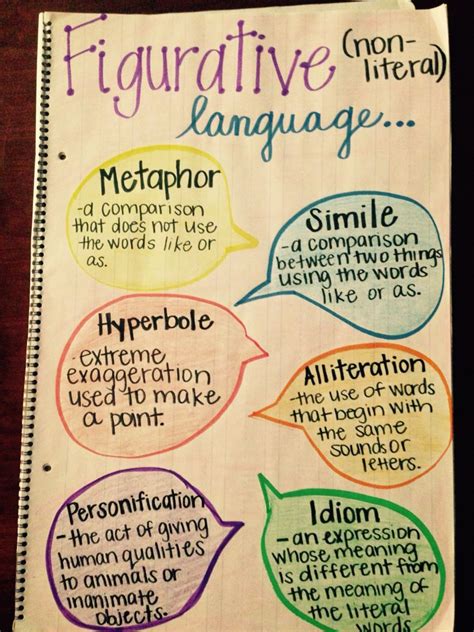 Figurative (non-
literal)
language...
Metaphor
-a comparison
that does not use
the words like or
as.
Simile
-a comparison
between two things
using the words
like or as.
Hyperbole
-extreme
exaggeration
used to make
a point.
Alliteration
-the use of words
that begin with
the same
sounds or
letters.
Personification
-the act of giving
human qualities
to animals or
inanimate
objects.
Idiom
-an expression
whose meaning
is different from
the meaning of
the literal
words